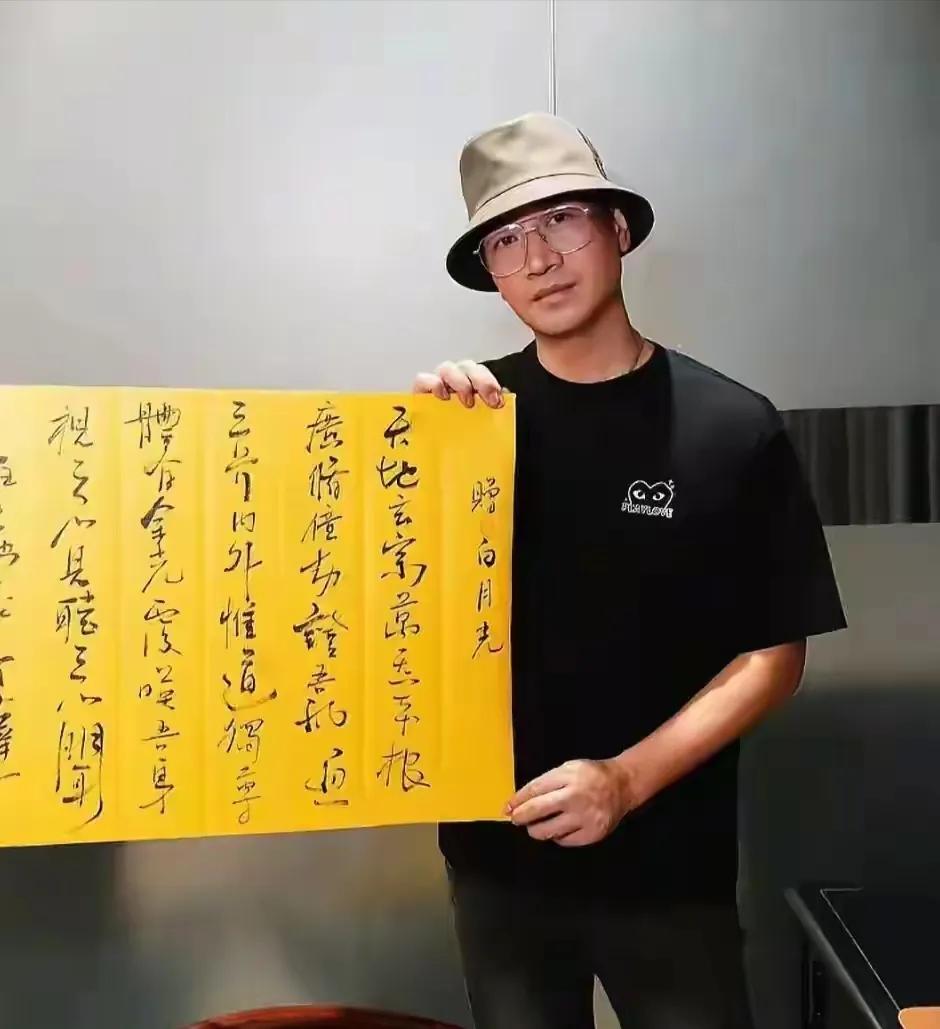 贈白月光
天地玄宗萬炁本根
廣脩億劫證吾神通
三界内外惟道獨尊
體有金光覆映吾身
視之不見聽之不聞
PLAYLOVE